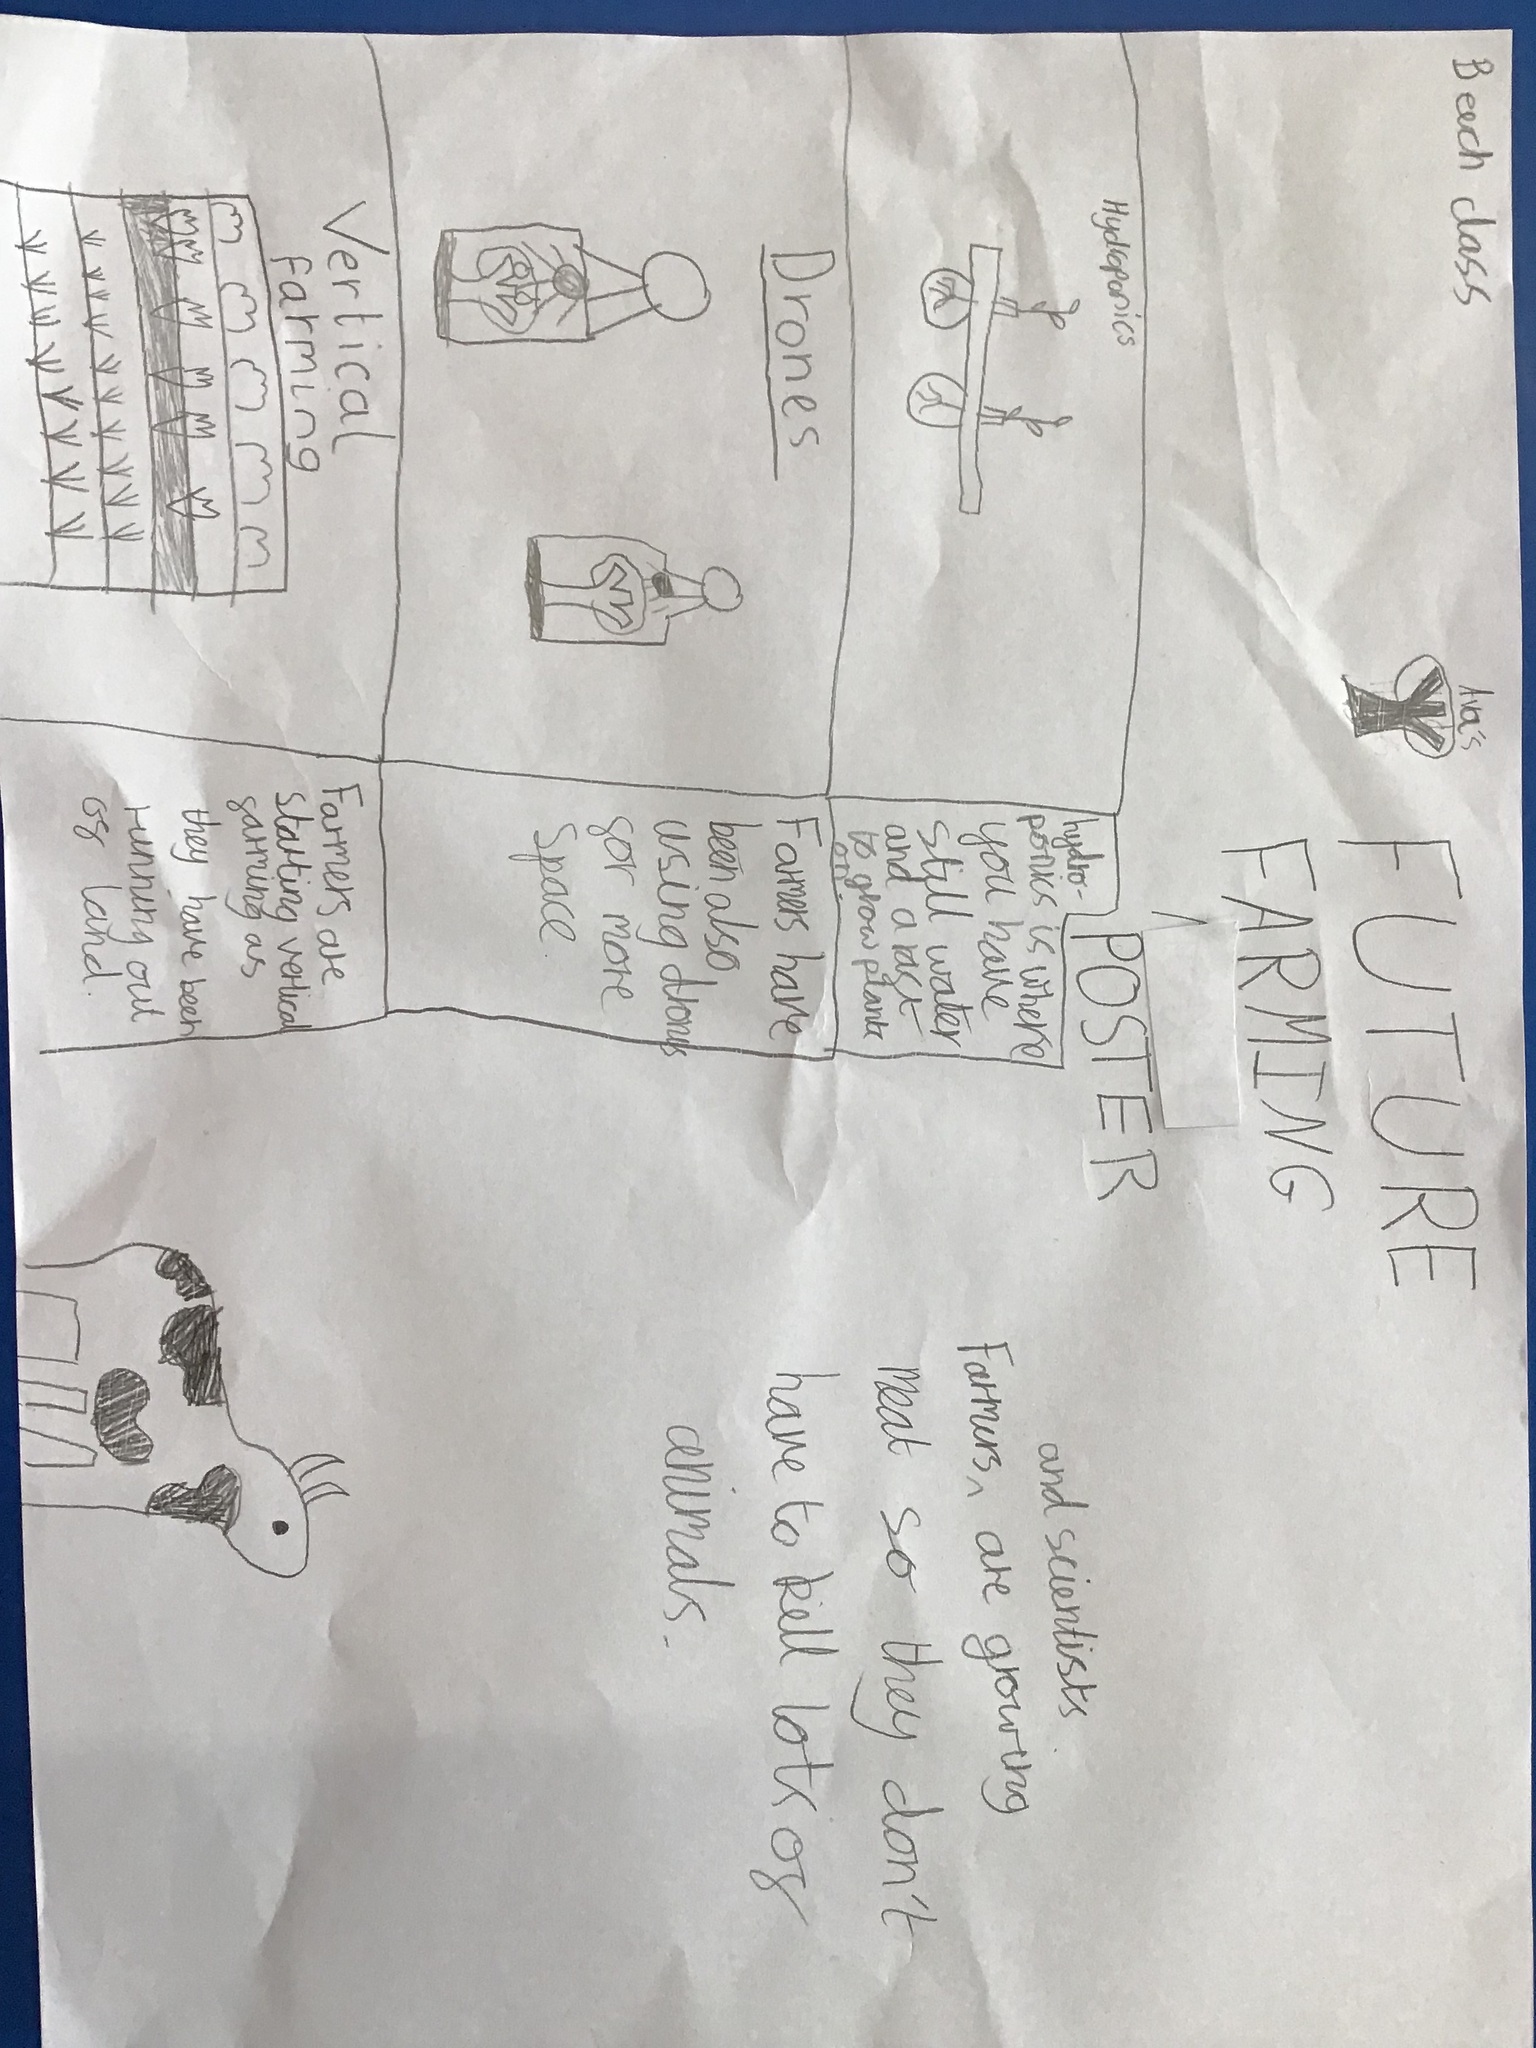 Beech class
Ava's
FUTURE
FARMING
POSTER
Hydroponics
hydro-
ponics is where
you have
still water
and a rast
to grow plants
on.
Drones
Farmers have
been also
using drones
for more
space.
Vertical
Farming
Farmers are
starting vertical
farming as
they have been
running out
of land.
and scientists
Farmers ^ are growing
meat so they don't
have to kell lots of
animals.